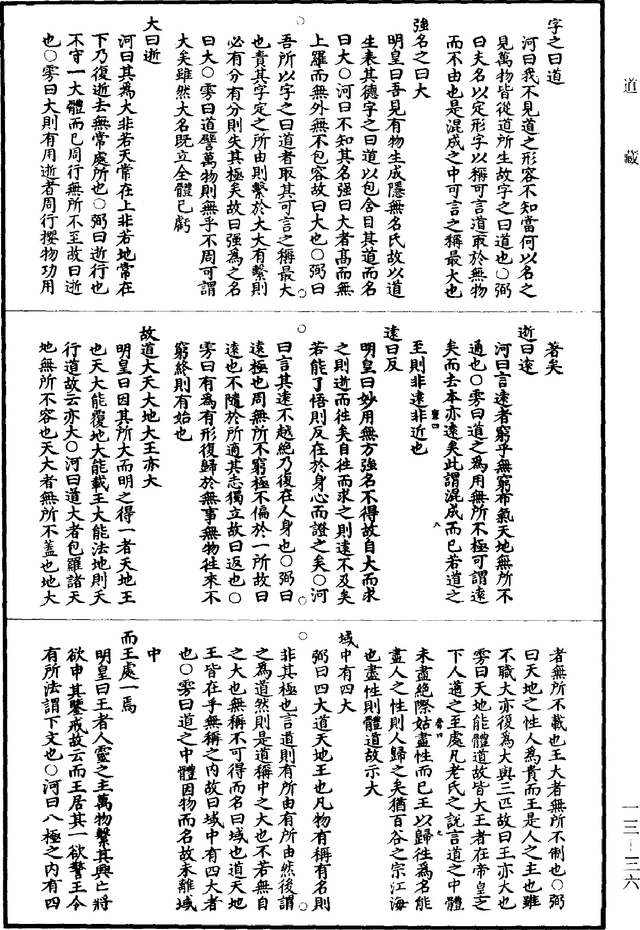 道藏
字之曰道
河曰我不見道之形容不知當何以名之
見萬物皆從道所生故字之曰道也○弼
曰夫名以定形字以稱可言道取於無物
而不由也是混成之中可言之稱最大也
強名之曰大
明皇曰吾見有物生成隱無名氏故以道
生表其德字之曰道以包含目其道而名
曰大○河曰不知其名强曰大者髙而無
上羅而無外無不包容故曰大也○弼曰
吾所以字之曰道者取其可言之稱最大
也責其字定之所由則繫於大大有繫則
必有分有分則失其極矣故曰强爲之名
曰大○雱曰道譬萬物則無乎不周可謂
大矣雖然大名既立全體已虧
大曰逝
河曰其爲大非若天常在上非若地常在
下乃復逝去無常處所也○弼曰逝行也
不守一大體而已周行無所不至故曰逝
也○雱曰大則有用逝者周行攖物功用
著矣
逝曰遠
河曰言遠者窮乎無窮布氣天地無所不
通也○雱曰道之爲用無所不極可謂遠
矣而去本亦遠矣此謂混成而已若道之
至則非遠非近也
遠曰反
明皇曰妙用無方強名不得故自大而求
之則逝而往矣自往而求之則遠不及矣
若能了悟則反在於身心而證之矣○河
曰言其遠不越絶乃復在人身也○弼曰
遠極也周無所不窮極不偏於一所故曰
遠也不隨於所適其志獨立故曰返也○
雱曰有爲有形復歸於無事無物往來不
窮終則有始也
故道大天大地大王亦大
明皇曰因其所大而明之得一者天地王
也天大能覆地大能載王大能法地則天
行道故云亦大○河曰道大者包羅諸天
地無所不容也天大者無所不蓋也地大
者無所不載也王大者無所不制也○弼
曰天地之性人爲貴而王是人之主也雖
不職大亦復爲大與三匹故曰王亦大也
雱曰天地能體道故皆大王者在帝皇之
下人道之至處凡老氏之說言道之中體
未盡絶際姑盡性而已王以歸往爲名能
盡人之性則人歸之矣猶百谷之宗江海
也盡性則體道故亦大
域中有四大
弼曰四大道天地王也凡物有稱有名則
非其極也言道則有所由有所由然後謂
之爲道然則是道稱中之大也不若無自
之大也無稱不可得而名曰域也道天地
王皆在乎無稱之内故曰域中有四大者
也○雱曰道之中體因物而名故未離域
中
而王處一焉
明皇曰王者人靈之主萬物繫其興亡將
欲申其鑒戒故云而王居其一欲警王令
有所法謂下文也○河曰八極之内有四
一三—三六